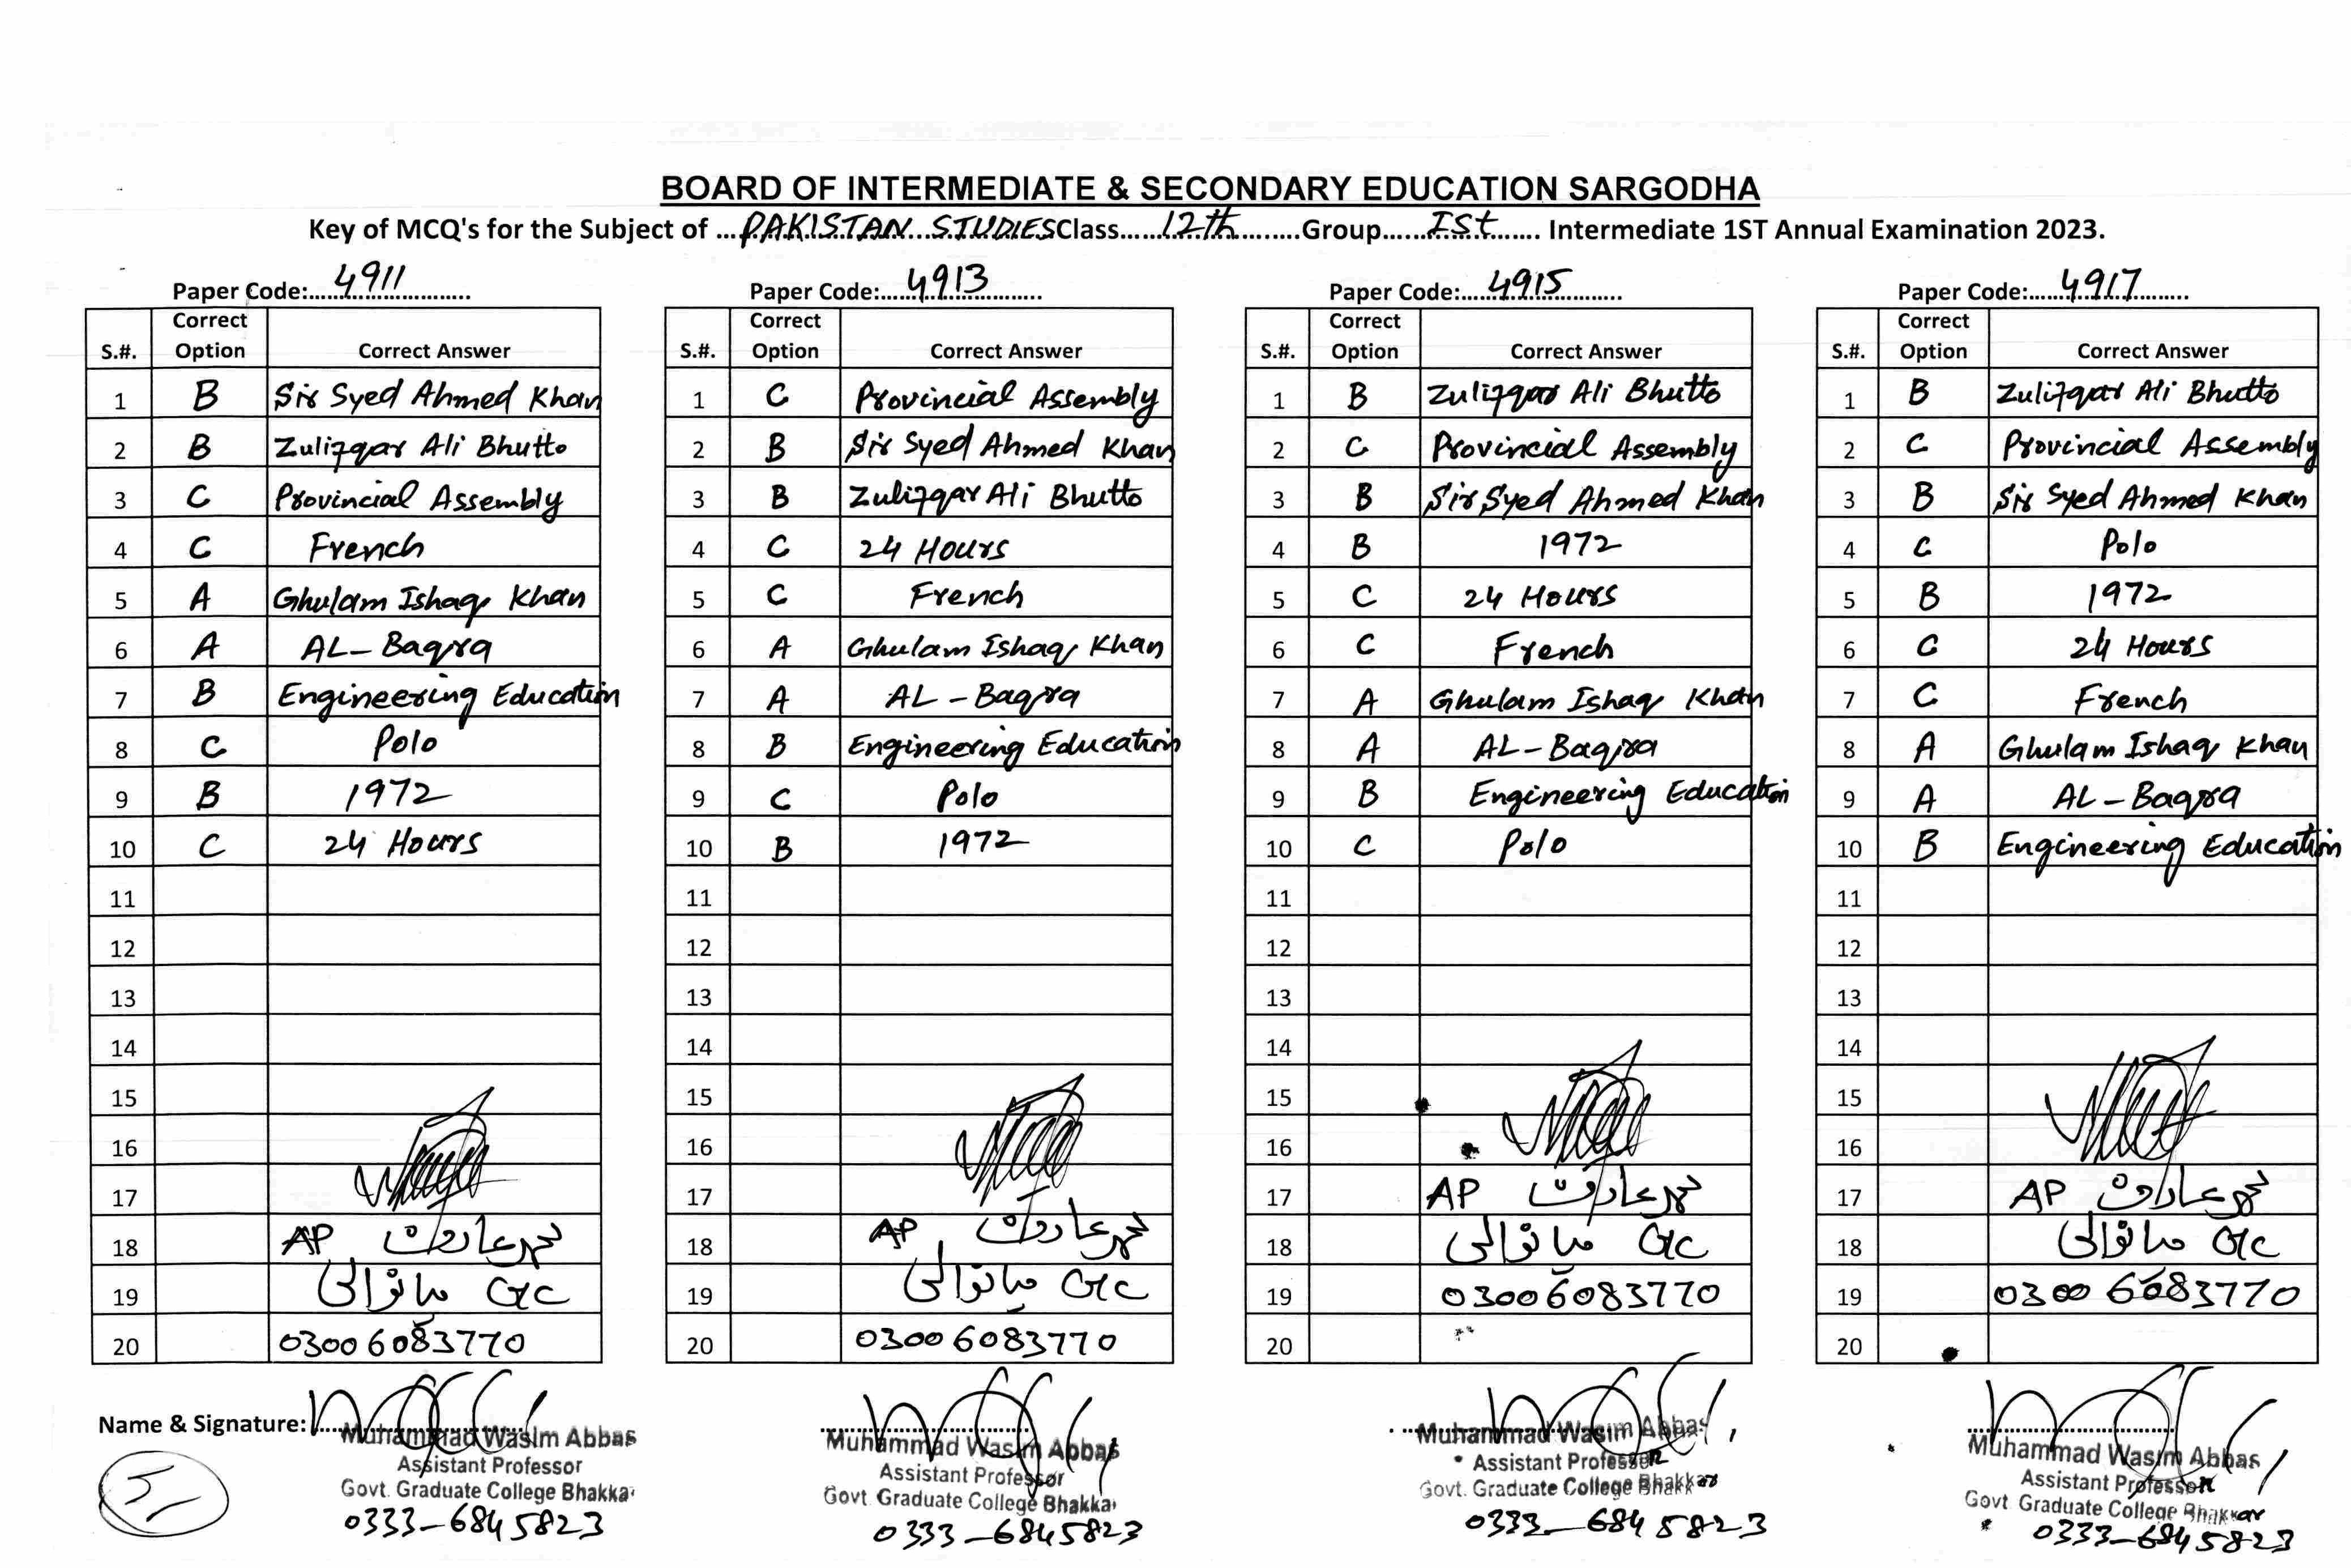 BOARD OF INTERMEDIATE & SECONDARY EDUCATION SARGODHA
Key of MCQ's for the Subject of PAKISTAN STUDIES Class 12th Group Ist Intermediate 1ST Annual Examination 2023.
Paper Code: 4911
S.#. Correct Option Correct Answer
1 B Sir Syed Ahmed Khan
2 B Zulifqar Ali Bhutto
3 C Provincial Assembly
4 C French
5 A Ghulam Ishaq Khan
6 A AL-Baqra
7 B Engineering Education
8 C Polo
9 B 1972
10 C 24 Hours
11
12
13
14
15
16
17
18 AP محمد عارف
19 GC میانوالی
20 03006083770
Name & Signature:
Muhammad Wasim Abbas
Assistant Professor
Govt. Graduate College Bhakka
0333-6845823
Paper Code: 4913
S.#. Correct Option Correct Answer
1 C Provincial Assembly
2 B Sir Syed Ahmed Khan
3 B Zulifqar Ali Bhutto
4 C 24 Hours
5 C French
6 A Ghulam Ishaq Khan
7 A AL-Baqra
8 B Engineering Education
9 C Polo
10 B 1972
11
12
13
14
15
16
17
18 AP محمد عارف
19 GC میانوالی
20 03006083770
Muhammad Wasim Abbas
Assistant Professor
Govt. Graduate College Bhakka
0333-6845823
Paper Code: 4915
S.#. Correct Option Correct Answer
1 B Zulifqar Ali Bhutto
2 C Provincial Assembly
3 B Sir Syed Ahmed Khan
4 B 1972
5 C 24 Hours
6 C French
7 A Ghulam Ishaq Khan
8 A AL-Baqra
9 B Engineering Education
10 C Polo
11
12
13
14
15
16
17 AP محمد عارف
18 GC میانوالی
19 03006083770
20
Muhammad Wasim Abbas
Assistant Professor
Govt. Graduate College Bhakkar
0333-6845823
Paper Code: 4917
S.#. Correct Option Correct Answer
1 B Zulifqar Ali Bhutto
2 C Provincial Assembly
3 B Sir Syed Ahmed Khan
4 C Polo
5 B 1972
6 C 24 Hours
7 C French
8 A Ghulam Ishaq Khan
9 A AL-Baqra
10 B Engineering Education
11
12
13
14
15
16
17 AP محمد عارف
18 GC میانوالی
19 03006083770
20
Muhammad Wasim Abbas
Assistant Professor
Govt. Graduate College Bhakkar
0333-6845823